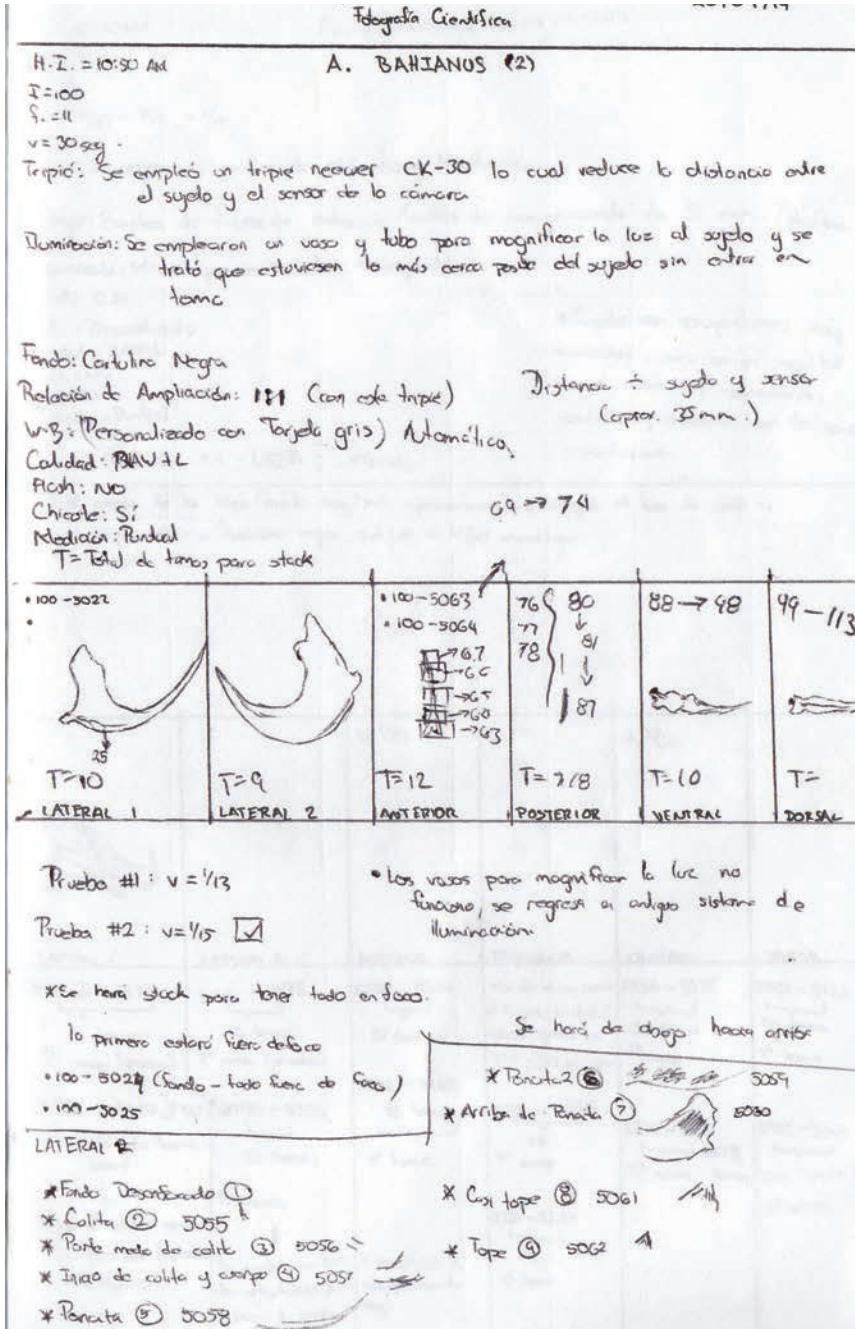 Fotografía Científica
H.I. = 10:50 AM
A. BAHIANUS (2)
I=100
f. =11
v= 30 seg.
Tripié: Se empleó un tripie neewer CK-30 lo cual reduce la distancia entre
el sujeto y el sensor de la cámara
Iluminación: Se emplearon un vaso y tubo para magnificar la luz al sujeto y se
trató que estuviesen lo más cerca del sujeto sin entrar en
toma
Fondo: Cartulina Negra
Relación de Ampliación: 1:1 (con este tripié)
Distancia ÷ sujeto y sensor
(aprox. 35mm.)
W-B: (Personalizado con Tarjeta gris) Automático.
Calidad: RAW+L
Flash: NO
Chicote: Sí
69 → 74
Medición: Puntual
T= Total de tomas para stack
• 100-5022
25
T=10
LATERAL 1
T=9
LATERAL 2
• 100-5063
• 100-5064
→67
→66
→65
→63
T=12
ANTERIOR
76
77
78
80
81
87
T= 7/8
POSTERIOR
88→98
T=10
VENTRAL
99-113
T=
DORSAL
Prueba #1: v= 1/13
• Los vasos para magnificar la luz no
funciono, se regresa a antiguo sistema de
iluminación.
Prueba #2: v=1/15
*Se hará stock para tener todo en foco.
lo primero estará fuera de foco
• 100-5024 (fondo - todo fuera de foco)
• 100-5025
Se hará de abajo hacia arriba
LATERAL 2
* Fondo Desenfocado ①
* Colita ② 5055
* Parte media de colita ③ 5056
* Inicio de colita y cuerpo ④ 5057
* Pancita ⑤ 5058
* Pancita2 ⑥ 5059
* Arriba de Pancita ⑦ 5060
* Casi tope ⑧ 5061
* Tope ⑨ 5062